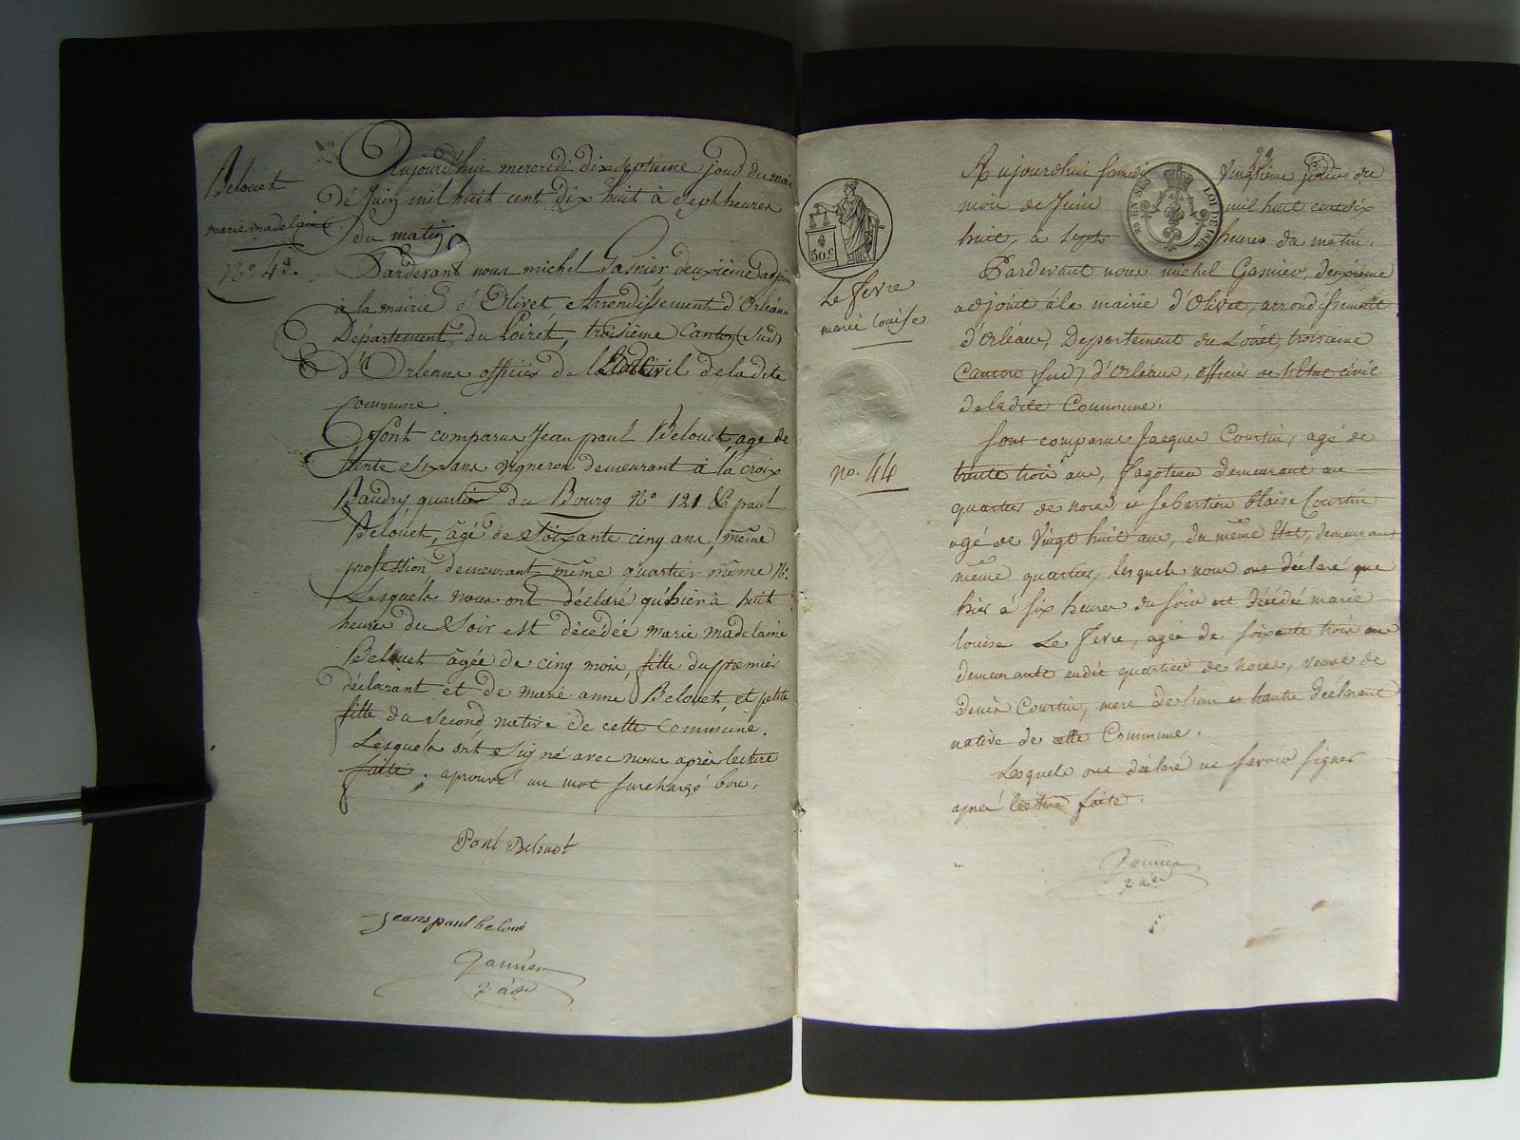 Belouet
marie madelaine
No 43.
Aujourd'hui mercredi dix septieme jour du mois
De Juin mil huit cent dix huit à sept heures
du matin
Pardevant nous michel Gasnier deuxieme adjoint
à la mairie d'Olivet arrondissement d'Orléans
Département du Loiret, troisième Canton (sud)
d'Orléans officier de l'Etat Civil de la dite
commune.
Sont comparus Jean paul Belouet, agé de
trente six ans vigneron demeurant à la croix
Baudry, quartier du Bourg No 121 & paul
Belouet, âgé de soixante cinq ans, même
profession demeurant même quartier même No.
Lesquels nous ont déclaré qu'hier à huit
heures du Soir est décédée marie madelaine
Belouet âgée de cinq mois, fille du premier
déclarant et de marie anne Belouet, et petite
fille du second, native de cette commune.
Lesquels ont signé avec nous après lecture
faite. aprouvé un mot surchargé bon.
Poul Belouet
jean paul belouet
Gasnier
2 ade
30 c
Le Fevre
marie Louise
no. 44
22
Aujourdhui samedi vingtième jour du
mois de Juin mil huit cent dix
huit, à sept heures du matin.
LOI DE 1816
Pardevant nous michel Gasnier, deuxième
adjoint à la mairie d'Olivet, arrondissement
d'Orléans, Departement du Loiret, troisieme
Canton (sud) d'Orleans, officier de l'état civil
de ladite Commune.
Sont comparus Jacques Courtin, agé de
trente trois ans, fagoteur demeurant au
quartier de et sebastien blaise Courtin
agé de Vingt huit ans, du même Etat, demeurant
même quartier, lesquels nous ont déclaré que
hier à six heures du soir est décédé marie
louise Le Fevre, agée de soixante trois ans
demeurante audit quartier de veuve de
Denis Courtin, mere de l'un et l'autre déclarant
native de cette Commune.
Lesquels ont déclaré ne savoir signer
après lecture faite.
Gasnier
2 ade